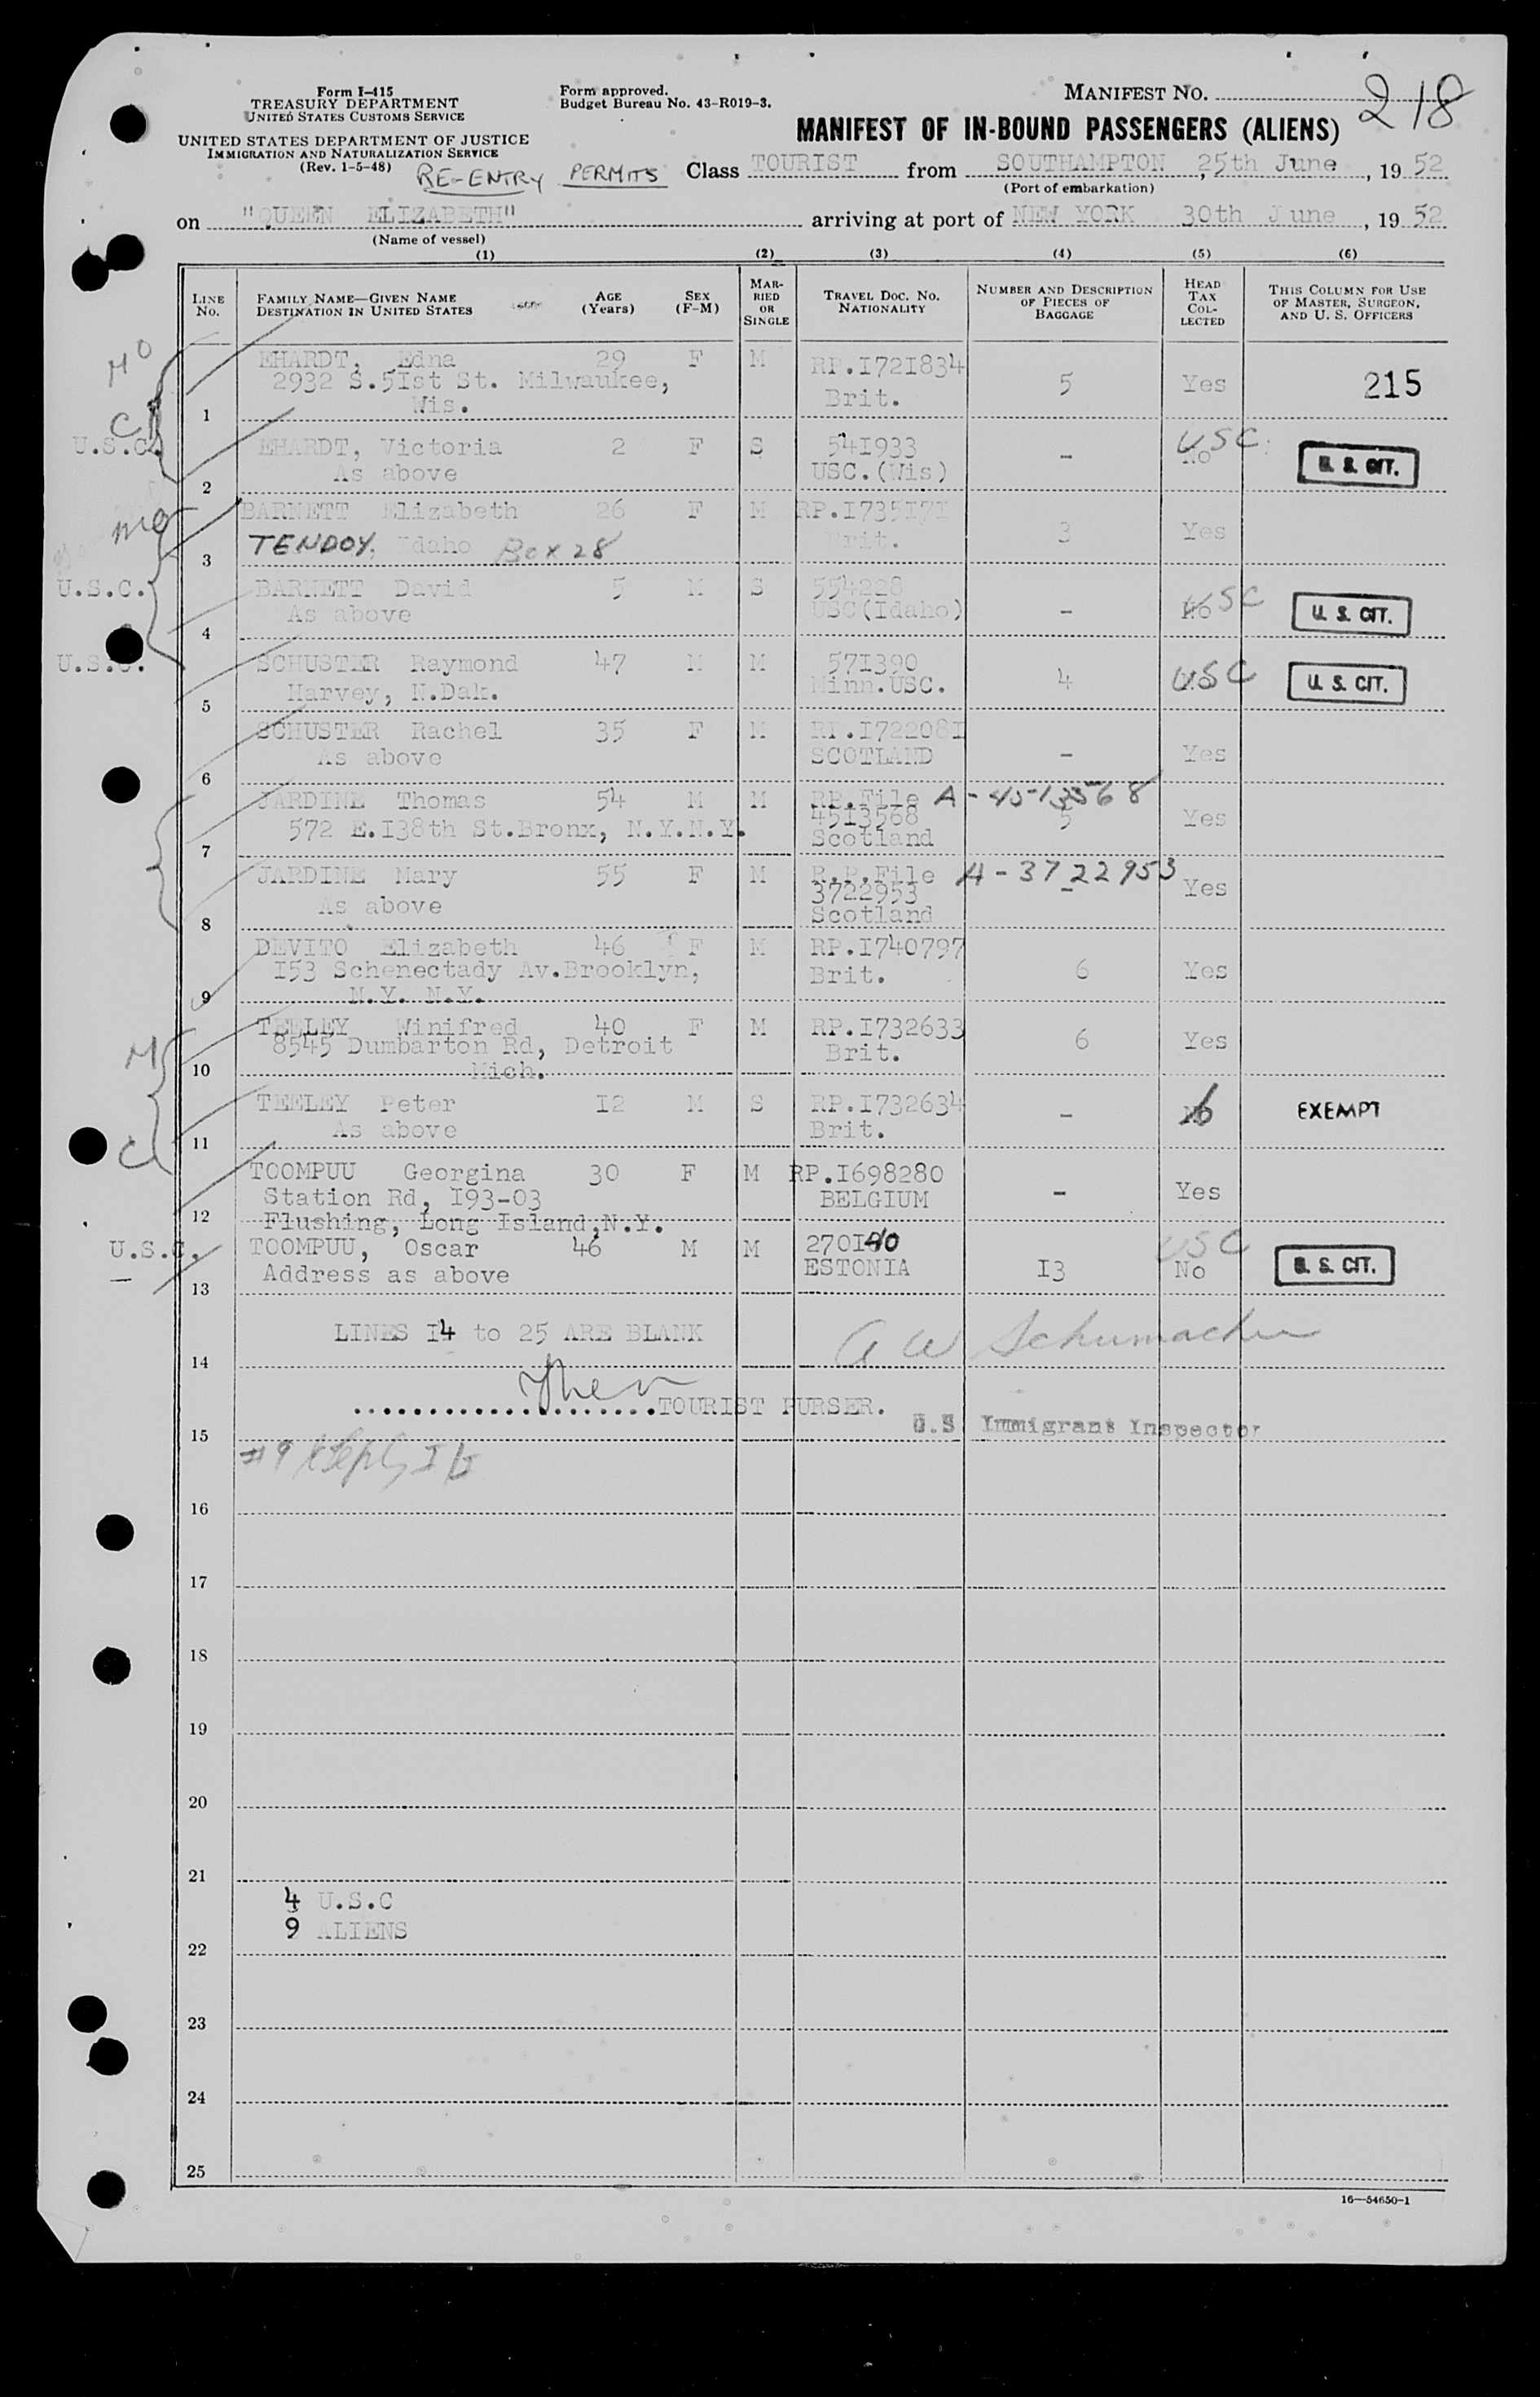 Form I-415
TREASURY DEPARTMENT
UNITED STATES CUSTOMS SERVICE
UNITED STATES DEPARTMENT OF JUSTICE
IMMIGRATION AND NATURALIZATION SERVICE
(Rev. 1-5-48)
Form approved.
Budget Bureau No. 43-R019-3.
MANIFEST NO. 218
MANIFEST OF IN-BOUND PASSENGERS (ALIENS)
RE-ENTRY PERMITS Class TOURIST from SOUTHAMPTON, 25th June, 19 52
(Port of embarkation)
on "QUEEN ELIZABETH" arriving at port of NEW YORK 30th June, 19 52
(Name of vessel)
(1) (2) (3) (4) (5) (6)
LINE NO. FAMILY NAME—GIVEN NAME DESTINATION IN UNITED STATES AGE (Years) SEX (F-M) MARRIED OR SINGLE TRAVEL DOC. NO. NATIONALITY NUMBER AND DESCRIPTION OF PIECES OF BAGGAGE HEAD TAX COLLECTED THIS COLUMN FOR USE OF MASTER, SURGEON, AND U. S. OFFICERS
EHARDT, Edna 29 F M RP.I721834
2932 S.5Ist St. Milwaukee, 5 Yes 215
1 Wis. Brit.
U.S.C. EHARDT, Victoria 2 F S 541933 - No USC U. S. CIT.
2 As above USC.(Wis)
BARNETT Elizabeth 26 F M RP.I735I7I
3 TENDOY, Idaho Box 28 Brit. 3 Yes
U.S.C. BARNETT David 5 M S 554228
4 As above USC(Idaho) - No USC U. S. CIT.
U.S.C. SCHUSTER Raymond 47 M M 571390
5 Harvey, N.Dak. Minn.USC. 4 USC U. S. CIT.
SCHUSTER Rachel 35 F M RP.I72208I
6 As above SCOTLAND - Yes
JARDINE Thomas 54 M M RP.File A-4513568
572 E.I38th St.Bronx, N.Y.N.Y. 45I3568 5 Yes
7 Scotland
JARDINE Mary 55 F M R.P.File A-3722953
3722953 - Yes
8 As above Scotland
DEVITO Elizabeth 46 F M RP.I740797
I53 Schenectady Av.Brooklyn, Brit. 6 Yes
9 N.Y. N.Y.
TEELEY Winifred 40 F M RP.I732633
8545 Dumbarton Rd, Detroit Brit. 6 Yes
10 Mich.
TEELEY Peter I2 M S RP.I732634
11 As above Brit. - No EXEMPT
TOOMPUU Georgina 30 F M RP.I698280
Station Rd, I93-03 BELGIUM - Yes
12 Flushing, Long Island,N.Y.
U.S.C. TOOMPUU, Oscar 46 M M 270I40 USC
13 Address as above ESTONIA I3 No U. S. CIT.
LINES I4 to 25 ARE BLANK A W Schumacher
14
TOURIST PURSER.
15 U.S Immigrant Inspector
16
17
18
19
20
21
4 U.S.C
9 ALIENS
22
23
24
25
16—54650-1